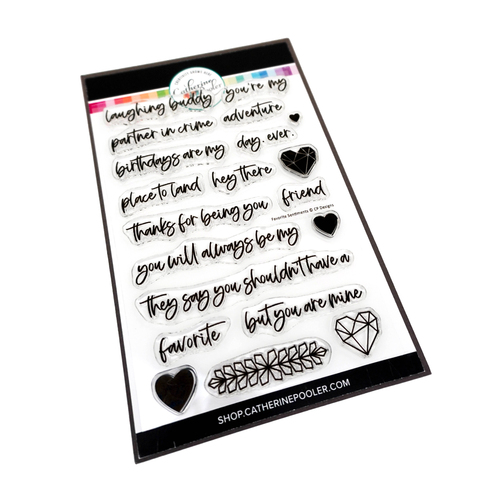 Catherine Pooler
laughing buddy you're my
partner in crime adventure
birthdays are my day. ever.
place to land hey there
thanks for being you friend
Favorite Sentiments © CP Designs
you will always be my
they say you shouldn't have a
favorite but you are mine
SHOP.CATHERINEPOOLER.COM